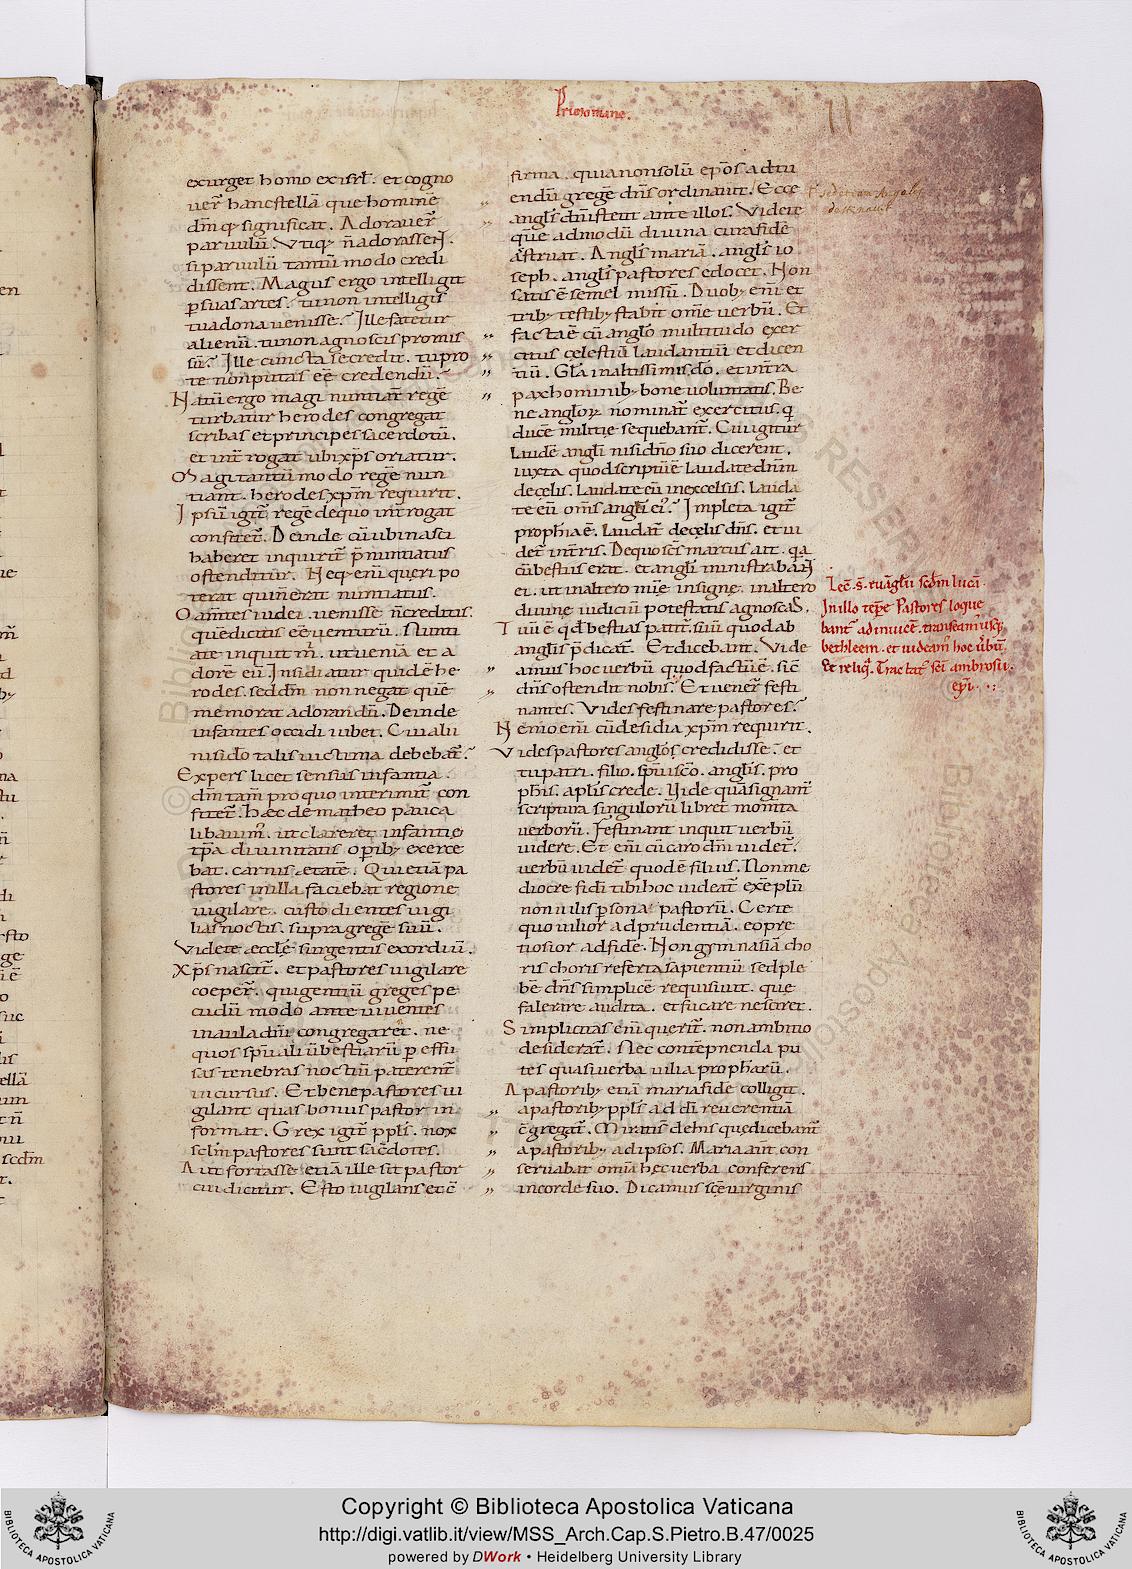 Primo mane.
11
exurget homo ex isrł. et cogno
uer̄ hanc stellā que hominē
dm̄ qȝ significat. Adorauer̄
paruulū. Vtiqȝ n̄ adorassent.
si paruulū tantū modo credi
dissent. Magus ergo intelligit
p suas artes. tu non intelligis
tua dona uenisse. Ille fatetur
alienū. tu non agnoscis promis
sū. Ille cuncta se credit. tu pro
te non putas eē credendū.
Natū ergo magi nuntiant regē
turbatur herodes congregat
scribas et principes sacerdotū.
et int̄rogat ubi xp̄s oriatur.
Magi tantū modo regē nun
tiant. herodes xp̄m requirit.
Ipsū igit̄ regē de quo int̄rogat
confitet̄. Deinde cū ubi nasci
haberet inquirit̄ p̄nuntiatus
ostenditur. Neqȝ enī queri po
terat qui n̄ erat nuntiatus.
Oam̄tes iudei. uenisse n̄ creditis.
quē dicitis eē uenturū. Nunti
ate inquit m̄. ut ueniā et a
dorē eū. Insidiatur quidē he
rodes. sed dm̄ non negat quē
memorat adorandū. Deinde
infantes occidi iubet. Cui alii
nisi dō talis uictima debebat̄.
Expers licet sensus infantia
dm̄ tam̄ pro quo interimit̄ con
fitet̄. Hæc de matheo pauca
libauim̄. ut clareret infantię
tp̄a diuinitatis opibȝ exerce
bat. carnis ætatē. Qui etiā pa
stores in illa faciebat regione
uigilare. custodientes uigi
lias noctis. supra gregē suū.
Videte æcclę surgentis exordiū.
Xp̄s nascit̄. et pastores uigilare
coeper̄. qui gentiū greges pe
cudū modo ante uiuentes
in aula dn̄i congregaret. ne
quos sp̄uali ū bestiarū p effu
sas tenebras noctiū paterent̄
incursus. Et bene pastores ui
gilant quas bonus pastor in
format. Grex igit̄ ppłs. nox
sclm̄ pastores sunt sac̄dotes.
Aut fortasse etiā ille sit pastor
cui dicitur. Esto uigilans et c̄
firma. quia non solū ep̄os ad tu
endū gregē dn̄s ordinauit. Ecce
angłs dn̄i stetit ante illos. Videte
quē admodū diuina cura fidē
astruat. Angłs mariā. angłs io
seph. angłs pastores edocet. Non
satis ē semel missū. Duobȝ enī et
tribȝ testibȝ stabit om̄e uerbū. Et
facta ē cū anglo multitudo exer
citus cęlestiū laudantiū et dicen
tiū. Głā in altissimis dō. et in t̄ra
pax hominibȝ bone uoluntatis. Be
ne angloȝ nominat̄ exercitus. q
ducē militie sequebant̄. Cui igitur
laudē angłi nisi dn̄o suo dicerent.
iuxta quod scriptū ē laudate dn̄m
de cęlis. laudate eū in excelsis. lauda
te eū om̄s angłi ei'. Impleta igit̄
prophia ē. laudat̄ de cęlis dn̄s. et ui
det̄ in t̄ris. De quo scs̄ marcus ait. qa
cū bestiis erat. et angłi ministrabant
ei. ut in altero mīe insigne. in altero
diuine iudiciū potestatis agnoscas.
Tuū ē qd bestias patit̄. suū quod ab
angłis p̄dicat̄. Et dicebant. Vide
amus hoc uerbū quod factū ē. sic̄
dn̄s ostendit nobis. Et uener̄ festi
nantes. Vides festinare pastores.
Nemo enī cū desidia xp̄m requirit.
Vides pastores anglos credidisse. et
tu patri. filio. sp̄ui scō. angłis. pro
phis. apłis crede. Vide quā signant̄
scriptura singulorū libret mom̄ta
uerborū. Festinant inquit uerbū
uidere. Et enī cū caro dn̄i uidet̄.
uerbū uidet̄ quod ē filius. Non me
diocre fidi tibi hoc uideat̄ exēplū
non uilis psona pastorū. Certe
quo uilior ad prudentiā. eo pre
tiosior ad fidē. Non gymnasiā cho
ris choris referta sapientiū sed ple
bē dn̄s simplicē requisiuit. que
falerare audita. et fucare nesciret.
Simplicitas enī querit̄. non ambitio
desideratur. Nec contēpnenda pu
tes quasi uerba uilia prophārū.
A pastoribȝ etiā maria fidē colligit.
a pastoribȝ ppłs ad dī reuerentiā
c̄gregat̄. Miratis de his que dicebant̄
a pastoribȝ ad ipsos. Maria aūt con
seruabat omīa hęc uerba conferens
in corde suo. Dicamus scę uirginis
Lec̄. s. euāgłii scdm̄ lucā.
In illo tēpe. Pastores loque
bant̄ ad inuicē. transeam' usqȝ
bethleem. et uideam' hoc ūbū.
Et reliq̄. Tractat̄ sc̄i ambrosii.
ep̄i.
Copyright © Biblioteca Apostolica Vaticana
http://digi.vatlib.it/view/MSS_Arch.Cap.S.Pietro.B.47/0025
powered by DWork • Heidelberg University Library
BIBLIOTECA APOSTOLICA VATICANA
BIBLIOTECA APOSTOLICA VATICANA